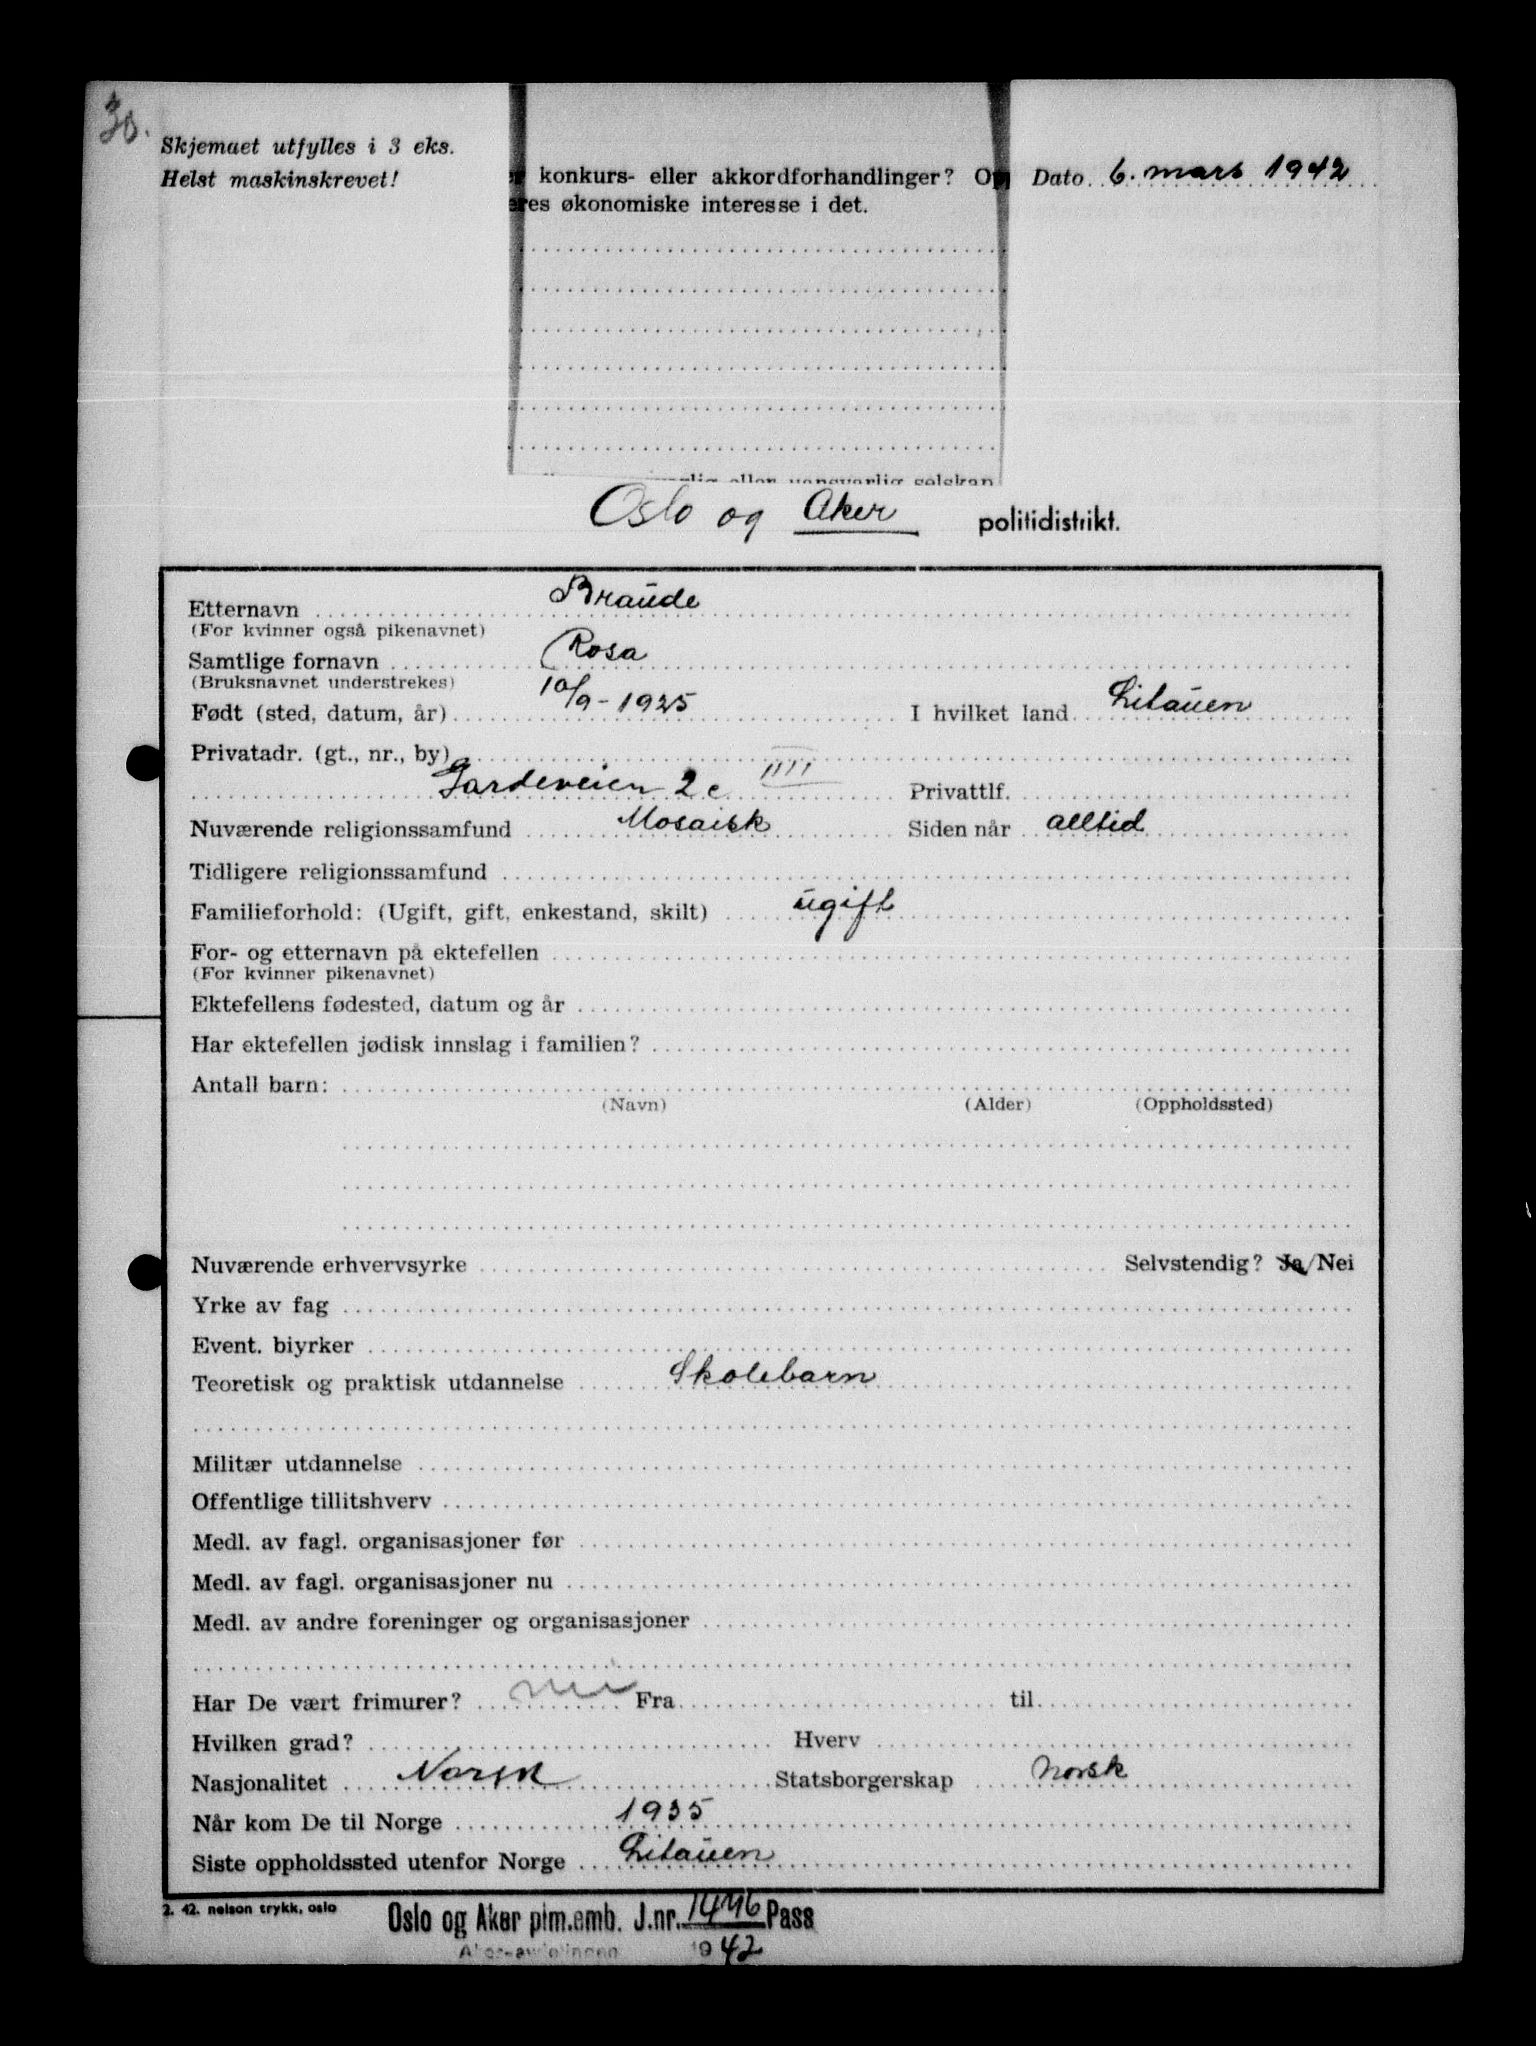 30.
Skjemaet utfylles i 3 eks.
Helst maskinskrevet!
konkurs- eller akkordforhandlinger? Om
økonomiske interesse i det.
Dato 6. mars 1942
eller uansvarlig selskap
Oslo og Aker politidistrikt.
Etternavn Braude
(For kvinner også pikenavnet)
Samtlige fornavn Rosa
(Bruksnavnet understrekes)
Født (sted, datum, år) 10/9-1925 I hvilket land Litauen
Privatadr. (gt., nr., by)
Gardeveien 2c IIII Privattlf.
Nuværende religionssamfund Mosaisk Siden når alltid
Tidligere religionssamfund
Familieforhold: (Ugift, gift, enkestand, skilt) ugift
For- og etternavn på ektefellen
(For kvinner pikenavnet)
Ektefellens fødested, datum og år
Har ektefellen jødisk innslag i familien?
Antall barn:
(Navn) (Alder) (Oppholdssted)
Nuværende erhvervsyrke Selvstendig? Ja/Nei
Yrke av fag
Event. biyrker
Teoretisk og praktisk utdannelse Skolebarn
Militær utdannelse
Offentlige tillitshverv
Medl. av fagl. organisasjoner før
Medl. av fagl. organisasjoner nu
Medl. av andre foreninger og organisasjoner
Har De vært frimurer? nei Fra til
Hvilken grad? Hverv
Nasjonalitet Norsk Statsborgerskap norsk
Når kom De til Norge 1935
Siste oppholdssted utenfor Norge Litauen
2. 42. nelson trykk, oslo
Oslo og Aker plm.emb. J.nr. 1446 Pass
Aker-avdelingen 1942